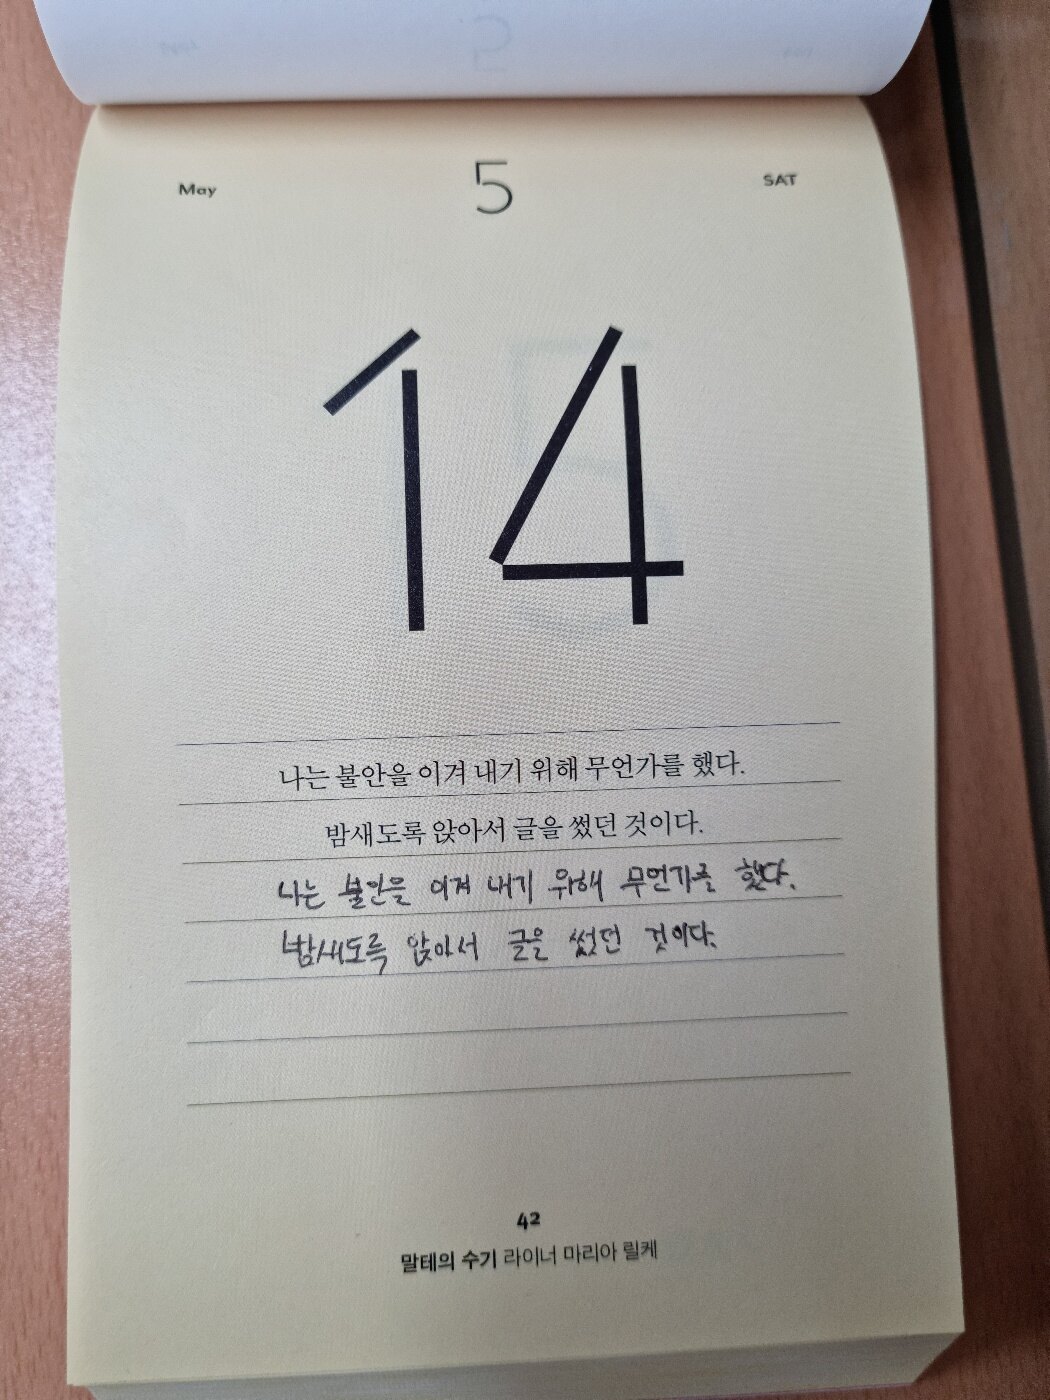 May 5 SAT
14
나는 불안을 이겨 내기 위해 무언가를 했다.
밤새도록 앉아서 글을 썼던 것이다.
나는 불안을 이겨 내기 위해 무언가를 했다.
밤새도록 앉아서 글을 썼던 것이다.
42
말테의 수기 라이너 마리아 릴케